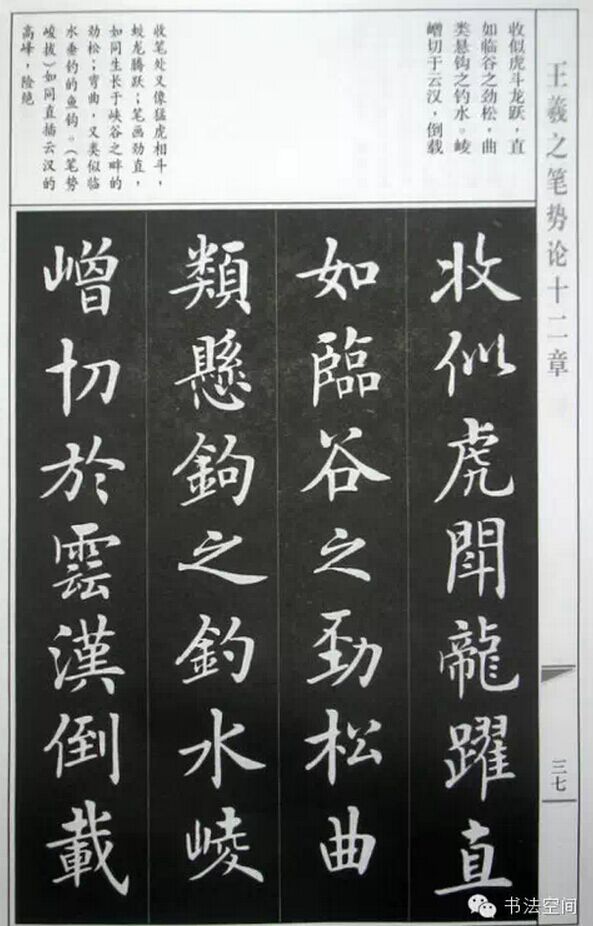 王羲之笔势论十二章
三七
收似虎斗龙跃，直
如临谷之劲松，曲
类悬钩之钓水。崚
嶒切于云汉，倒载
收笔处又像猛虎相斗，
蛟龙腾跃；笔画劲直，
如同生长于峡谷之畔的
劲松；弯曲，又类似临
水垂钓的鱼钩。（笔势
峻拔）如同直插云汉的
高峰，险绝
收似虎鬥龍躍直
如臨谷之勁松曲
類懸鉤之釣水崚
嶒切於雲漢倒載
书法空间